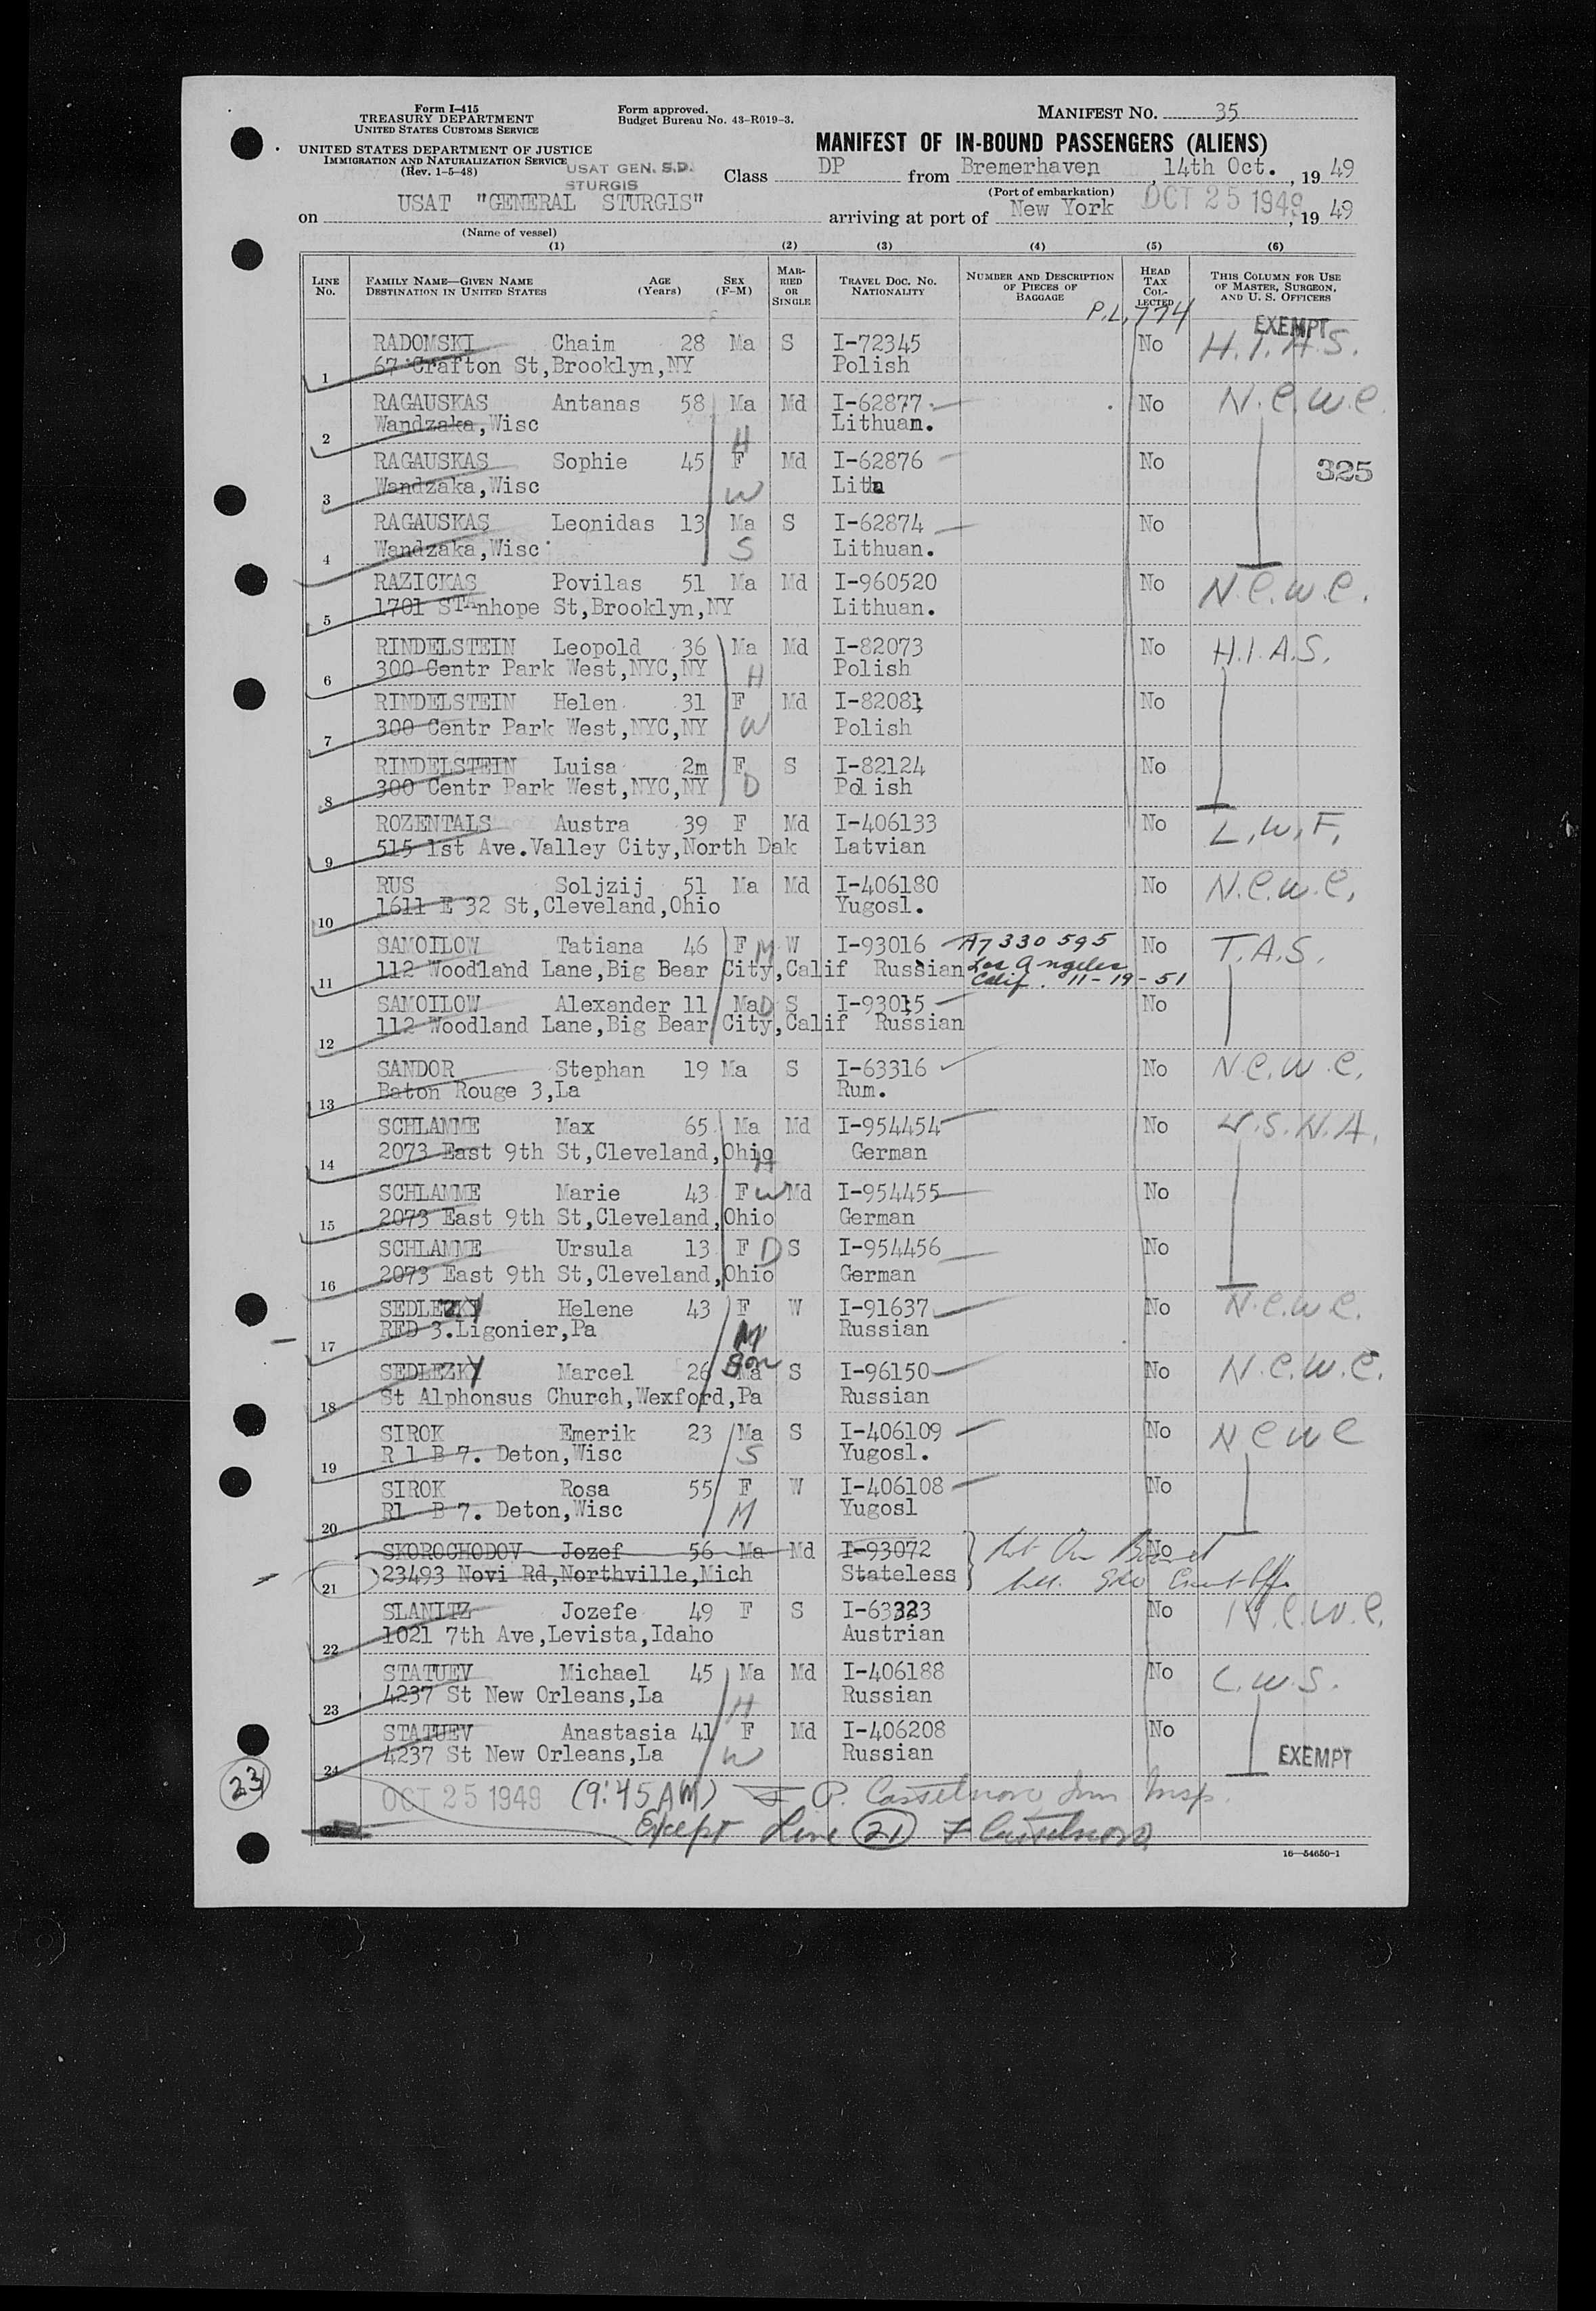 Form I-415
TREASURY DEPARTMENT
UNITED STATES CUSTOMS SERVICE
UNITED STATES DEPARTMENT OF JUSTICE
IMMIGRATION AND NATURALIZATION SERVICE
(Rev. 1-5-48)
Form approved.
Budget Bureau No. 43-R019-3.
MANIFEST No. 35
MANIFEST OF IN-BOUND PASSENGERS (ALIENS)
USAT GEN. S.D.
STURGIS
Class DP from Bremerhaven, 14th Oct., 19 49
(Port of embarkation)
on USAT "GENERAL STURGIS" arriving at port of New York OCT 25 1949, 19 49
(Name of vessel)
(1) (2) (3) (4) (5) (6)
LINE No. FAMILY NAME—GIVEN NAME DESTINATION IN UNITED STATES AGE (Years) SEX (F-M) MARRIED OR SINGLE TRAVEL DOC. No. NATIONALITY NUMBER AND DESCRIPTION OF PIECES OF BAGGAGE HEAD TAX COLLECTED THIS COLUMN FOR USE OF MASTER, SURGEON, AND U. S. OFFICERS
P.L. 774 EXEMPT
RADOMSKI Chaim 28 Ma S I-72345 No H.I.A.S.
1 67 Crafton St,Brooklyn,NY Polish
RAGAUSKAS Antanas 58 Ma Md I-62877 No N.C.W.C.
2 Wandzaka,Wisc H Lithuan.
RAGAUSKAS Sophie 45 F Md I-62876 No 325
3 Wandzaka,Wisc W Lith
RAGAUSKAS Leonidas 13 Ma S I-62874 No
4 Wandzaka,Wisc S Lithuan.
RAZICKAS Povilas 51 Ma Md I-960520 No N.C.W.C.
5 1701 STAnhope St,Brooklyn,NY Lithuan.
RINDELSTEIN Leopold 36 Ma Md I-82073 No H.I.A.S.
6 300 Centr Park West,NYC,NY H Polish
RINDELSTEIN Helen 31 F Md I-82081 No
7 300 Centr Park West,NYC,NY W Polish
RINDELSTEIN Luisa 2m F S I-82124 No
8 300 Centr Park West,NYC,NY D Polish
ROZENTALS Austra 39 F Md I-406133 No L.W.F.
9 515 1st Ave.Valley City,North Dak Latvian
RUS Soljzij 51 Ma Md I-406180 No N.C.W.C.
10 1611 E 32 St,Cleveland,Ohio Yugosl.
SAMOILOW Tatiana 46 F M W I-93016 A7 330 595 No T.A.S.
11 112 Woodland Lane,Big Bear City,Calif Russian Los Angeles Calif. 11-19-51
SAMOILOW Alexander 11 Ma D S I-93015 No
12 112 Woodland Lane,Big Bear City,Calif Russian
SANDOR Stephan 19 Ma S I-63316 No N.C.W.C.
13 Baton Rouge 3,La Rum.
SCHLAMME Max 65 Ma Md I-954454 No U.S.N.A.
14 2073 East 9th St,Cleveland,Ohio H German
SCHLAMME Marie 43 F W Md I-954455 No
15 2073 East 9th St,Cleveland,Ohio German
SCHLAMME Ursula 13 F D S I-954456 No
16 2073 East 9th St,Cleveland,Ohio German
SEDLEZKY Helene 43 F W I-91637 No N.C.W.C.
17 RED 3.Ligonier,Pa M Russian
SEDLEZKY Marcel 26 Son Ma S I-96150 No N.C.W.C.
18 St Alphonsus Church,Wexford,Pa Russian
SIROK Emerik 23 Ma S I-406109 No NCWC
19 R 1 B 7. Deton,Wisc S Yugosl.
SIROK Rosa 55 F W I-406108 No
20 R1 B 7. Deton,Wisc M Yugosl
SKOROCHODOV Jozef 56 Ma Md I-93072 Not On Board No
21 23493 Novi Rd,Northville,Mich Stateless
SLANITZ Jozefe 49 F S I-63323 No N.C.W.C.
22 1021 7th Ave,Levista,Idaho Austrian
STATUEV Michael 45 Ma Md I-406188 No C.W.S.
23 4237 St New Orleans,La H Russian
STATUEV Anastasia 41 F Md I-406208 No
24 4237 St New Orleans,La W Russian EXEMPT
23
OCT 25 1949 (9:45 AM) F P. Casselnovo Imm Insp.
Except Line 21 F Casselnovo
16—54650-1